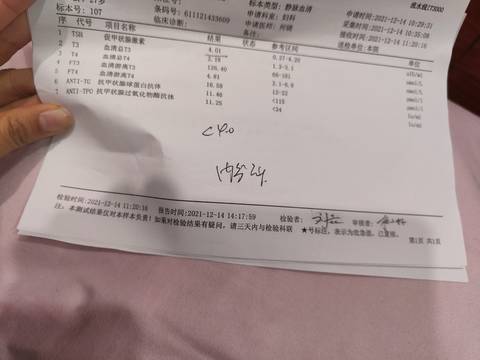 标本号: 107
条码号: 611121433609
临床诊断:
标本类型: 静脉血清
申请科室: 妇科
备注:
申请时间:2021-12-14 10:29:31
采集时间:2021-12-14 10:35:08
接收时间:2021-12-14 11:20:16
送检单位:本院
序 代号 项目名称 结果 状态 参考区间 单位
1 TSH 促甲状腺激素 4.01 0.27-4.20
2 T3 血清总T3 2.18 1.3-3.1
3 T4 血清总T4 126.40 66-181
4 FT3 血清游离T3 4.81 3.1-6.8
5 FT4 血清游离T4 16.58 12-22
6 ANTI-TG 抗甲状腺球蛋白抗体 11.46 <115
7 ANTI-TPO 抗甲状腺过氧化物酶抗体 11.25 <34
<4.0
内分泌
检验时间:2021-12-14 11:20:16 报告时间:2021-12-14 14:17:59 检验者: 审核者:
注: 本测试结果仅对本样本负责!如果对检验结果有疑问, 请三天内与检验科联 ★号标注, 表示为危急值, 已复核.
第1页 共1页